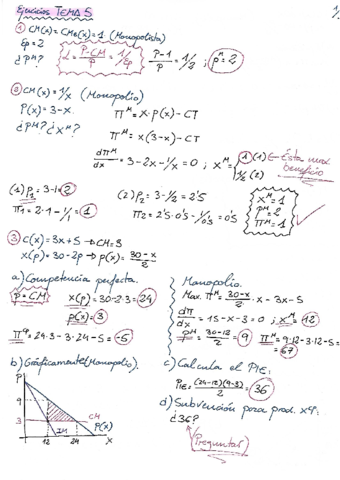 Ejercicios TEMA 5
1.
① CM(x) = CMg(x) = 1 (Monopolista)
Ep = 2
¿PM?
L = P-CM / P = 1/Ep
P-1 / P = 1/2 ; PM = 2
② CM(x) = 1/x (Monopolio)
P(x) = 3-x.
¿PM? ¿xM?
ΠM = x·p(x) - CT
ΠM = x(3-x) - CT
dΠM/dx = 3-2x-1/x = 0 ; xM = 1 (1) ← Ésta max. beneficio
1/2 (2)
(1) P1 = 3-1 = 2
Π1 = 2·1 - 1/1 = 1
(2) P2 = 3-1/2 = 2'5
Π2 = 2'5·0'5 - 1/0'5 = 0'5
xM = 1
PM = 2
ΠM = 1
③ C(x) = 3x+5 → CM = 3
x(p) = 30-2p → p(x) = 30-x / 2
a) Competencia perfecta.
P = CM
x(p) = 30-2·3 = 24
p(x) = 3
Π = 24·3 - 3·24 - 5 = -5
Monopolio.
Max. ΠM = 30-x / 2 · x - 3x - 5
dΠ/dx = 15-x-3 = 0 ; xM = 12
PM = 30-12 / 2 = 9
ΠM = 9·12 - 3·12 - 5 = 67
b) Gráficamente (Monopolio).
P
9
3
12
24
IM
CM
P(x)
x
c) Calcula el PIE:
PIE = (24-12)(9-3) / 2 = 36
d) Subvención para prod. x9:
¿36?
(Preguntar)